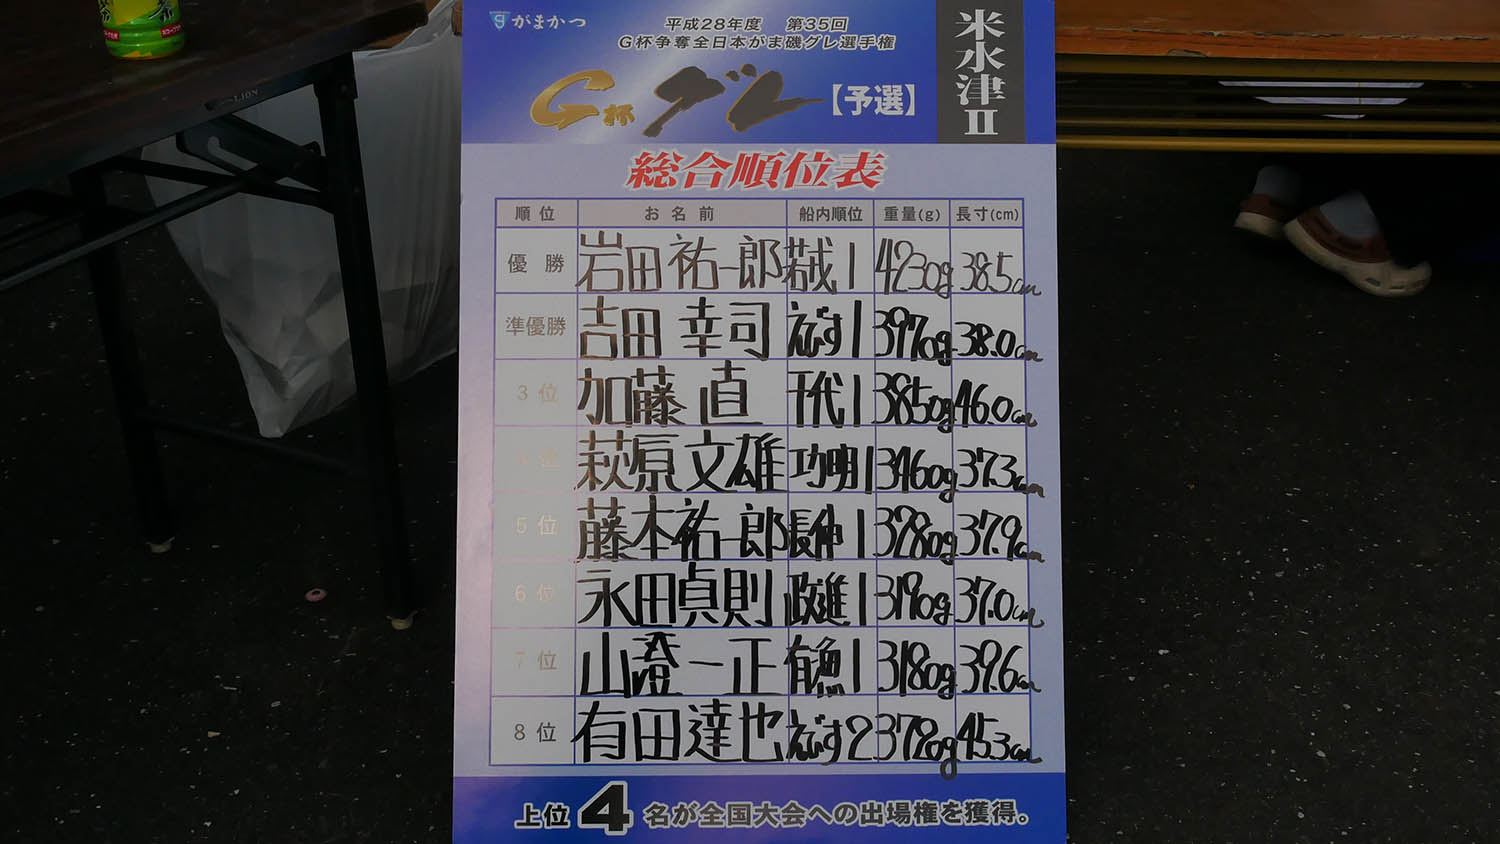 がまかつ
平成28年度 第35回
G杯争奪全日本がま磯グレ選手権
G杯グレ【予選】
米水津Ⅱ
総合順位表
順位 お名前 船内順位 重量(g) 長寸(cm)
優勝 岩田祐一郎 蛭蔵1 4230g 38.5cm
準優勝 吉田幸司 えびす1 3970g 38.0cm
3位 加藤直 千代1 3850g 46.0cm
4位 萩原文雄 功明1 3460g 37.3cm
5位 藤本祐一郎 長伸1 3280g 37.9cm
6位 永田貞則 政進1 3190g 37.0cm
7位 山澄一正 有漁1 3180g 39.6cm
8位 有田達也 えびす2 3720g 45.3cm
上位4名が全国大会への出場権を獲得。
LION